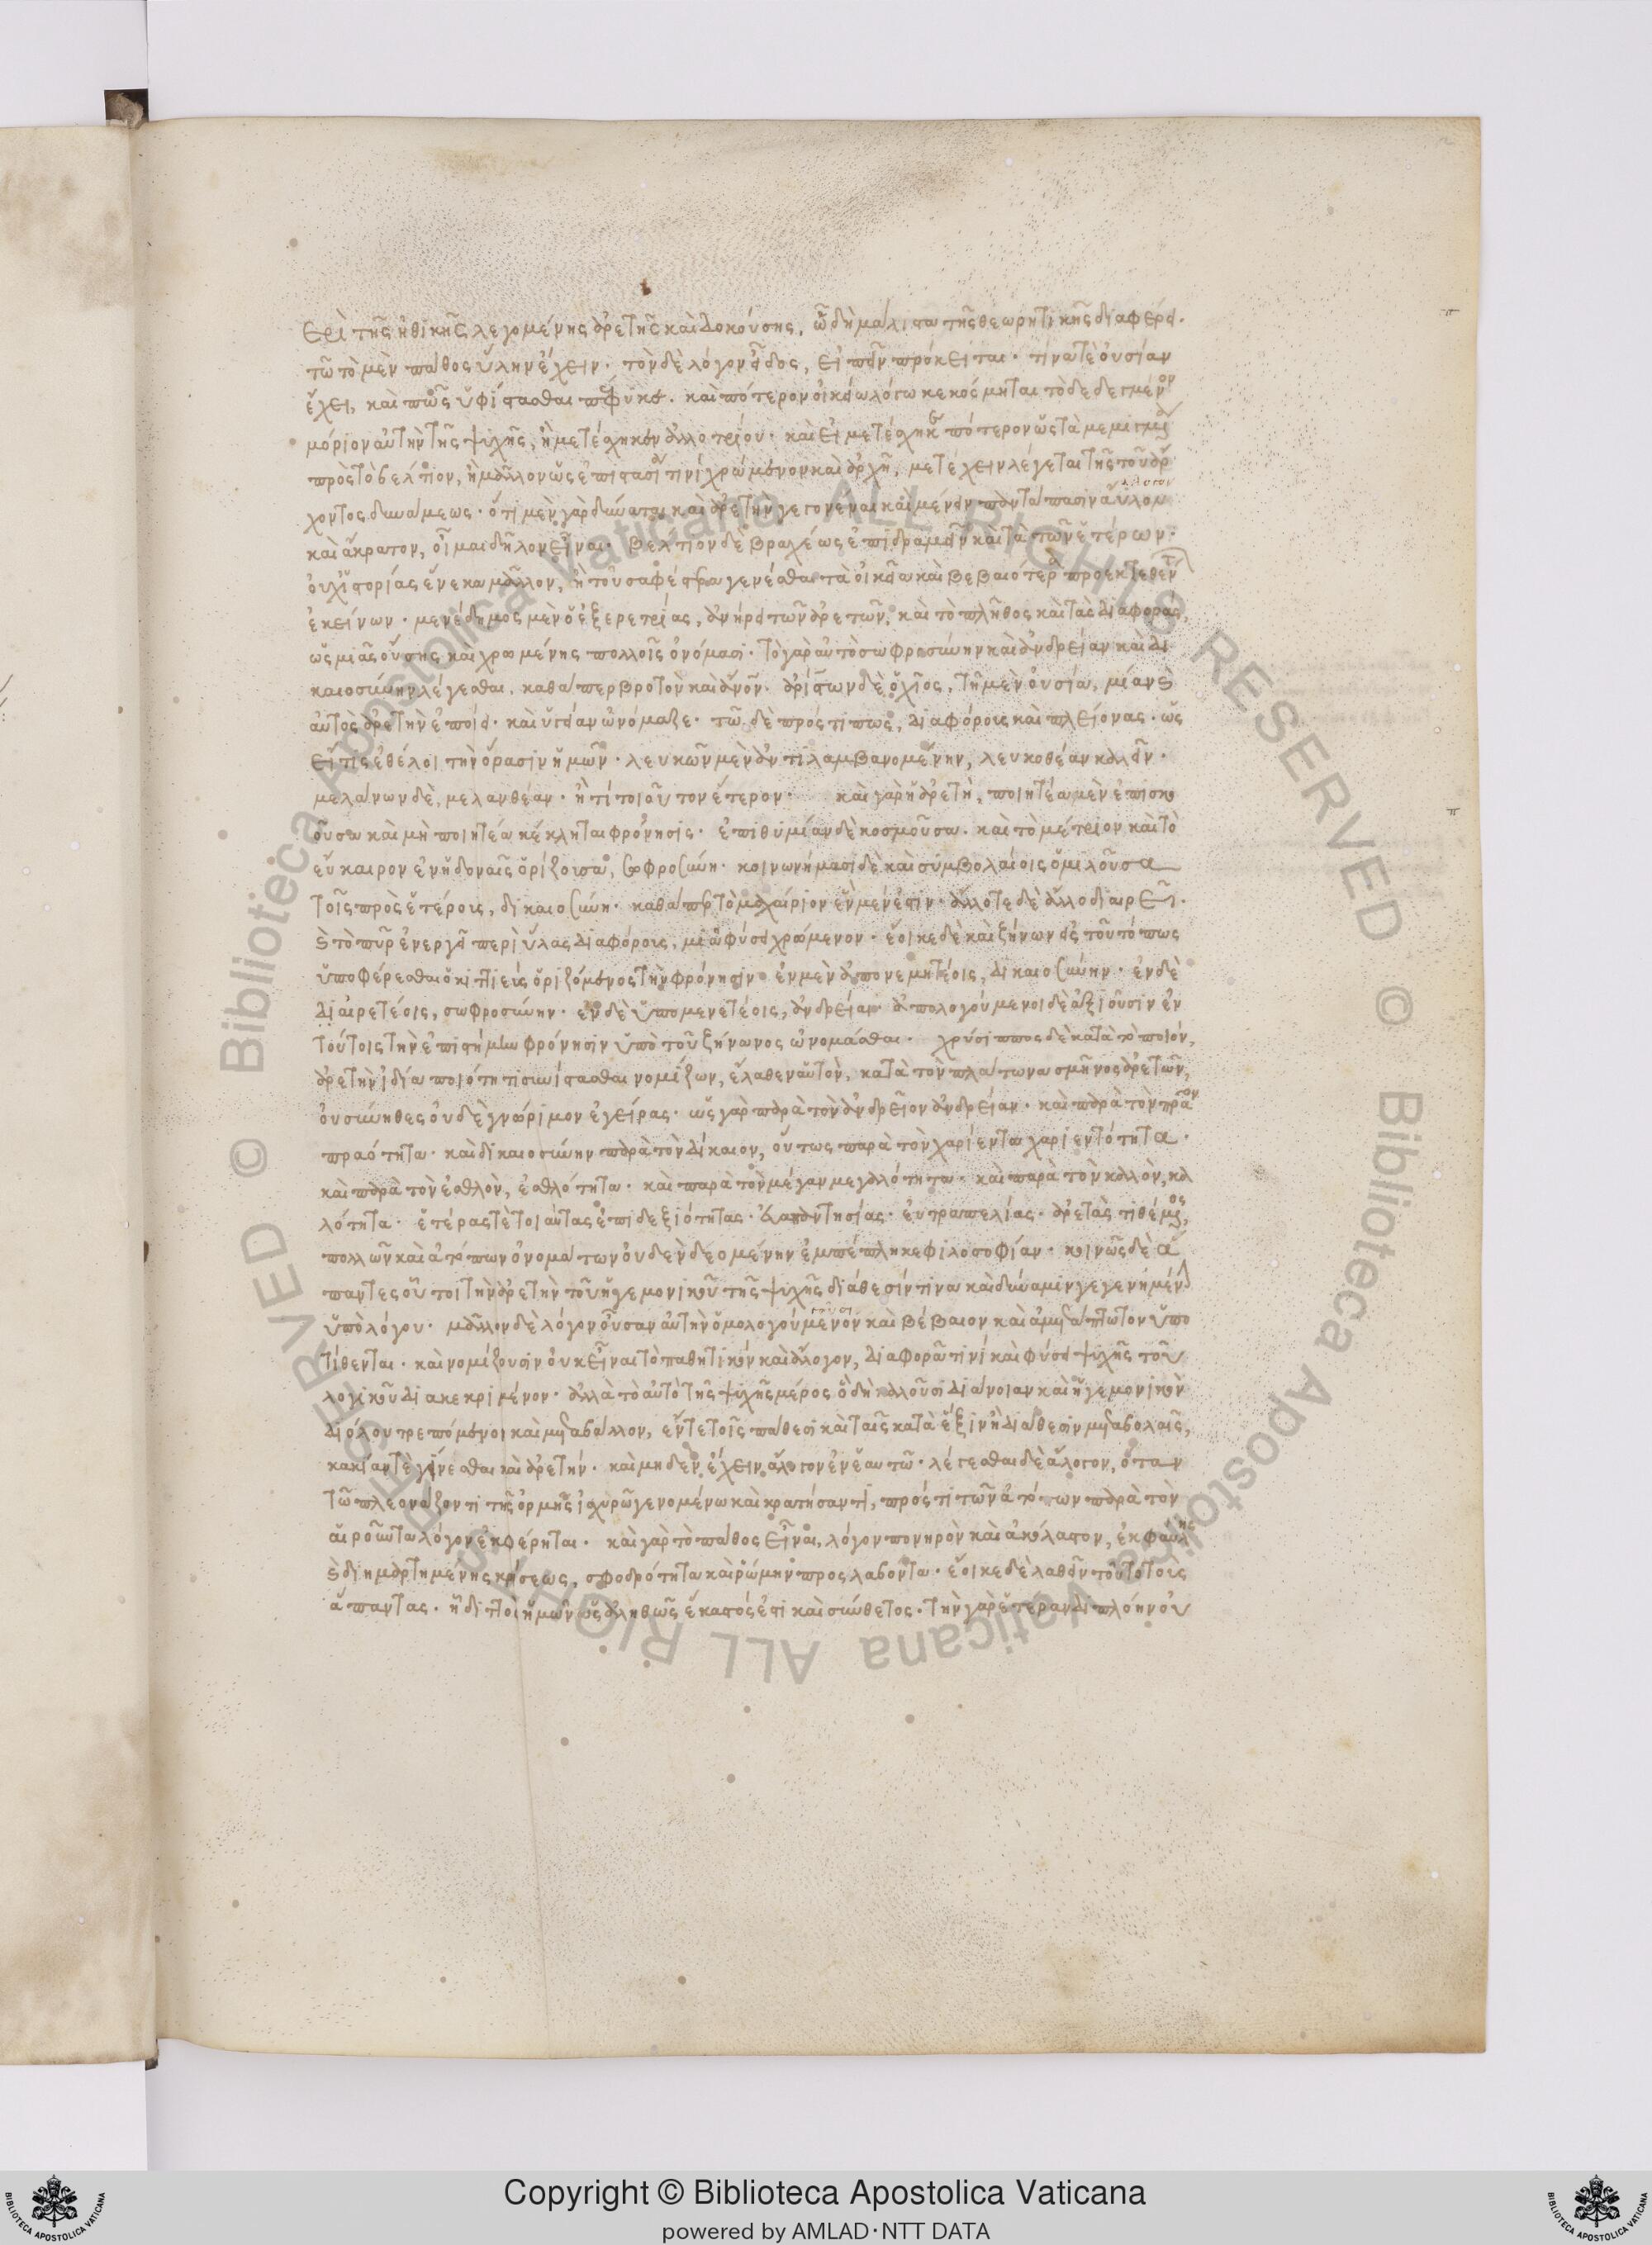 Ερὶ τῆς ἠθικῆς λεγομένης ἀρετῆς καὶ δοκούσης, ᾧ δὴ μάλιστα τῆς θεωρητικῆς διαφέρει·
τῷ τὸ μὲν πάθος ὕλην ἔχειν· τὸν δὲ λόγον εἶδος, εἰπεῖν πρόκειται· τίνα τὲ οὐσίαν
ἔχει, καὶ πῶς ὑφίστασθαι πέφυκε· καὶ πότερον οἰκείω λόγω κεκόσμηται τὸ δεδεγμένον
μόριον αὐτὴν τῆς ψυχῆς, ἢ μετέσχηκεν ἀλλοτρίου· καὶ εἰ μετέσχηκε πότερον ὡς τὰ μεμιγμένα
πρὸς τὸ βέλτιον, ἢ μᾶλλον ὡς ἐπιστασία τινὶ χρώμενον καὶ ἀρχῆ, μετέχειν λέγεται τῆς τοῦ ἄρ
χοντος δυνάμεως· ὅτι μὲν γὰρ δύναται καὶ ἀρετὴ γεγονέναι καὶ μένειν παντάπασιν ἄϋλον
καὶ ἄκρατον, οἶμαι δῆλον εἶναι· βέλτιον δὲ βραχέως ἐπιδραμεῖν καὶ τὰ τῶν ἑτέρων·
οὐχ ἱστορίας ἕνεκα μᾶλλον, ἢ τοῦ σαφέστερα γενέσθαι τὰ οἰκεῖα καὶ βεβαιότερα προεκτεθέντων
ἐκείνων· μενέδημος μὲν ὁ ἐξ ἐρετρίας, ἀνήρει τῶν ἀρετῶν, καὶ τὸ πλῆθος καὶ τὰς διαφορὰς,
ὡς μιᾶς οὔσης καὶ χρωμένης πολλοῖς ὀνόμασι· τὸ γὰρ αὐτὸ σωφροσύνην καὶ ἀνδρείαν καὶ δι
καιοσύνην λέγεσθαι, καθάπερ βροτὸν καὶ ἄνον· ἀρίστων δὲ ὁ χῖος, τῆ μὲν οὐσία, μίαν καὶ
αὐτὸς ἀρετὴν ἐποίει· καὶ ὑγείαν ὠνόμαζε· τῶ δὲ πρός τι πως, διαφόρους καὶ πλείονας· ὡς
εἴ τις ἐθέλοι τὴν ὅρασιν ἡμῶν· λευκῶν μὲν ἀντιλαμβανομένην, λευκοθέαν καλεῖν·
μελάνων δὲ, μελανθέαν· ἤ τι τοιοῦτον ἕτερον· καὶ γὰρ ἡ ἀρετὴ, ποιητέα μὲν ἐπισκο
ποῦσα καὶ μὴ ποιητέα κέκληται φρόνησις· ἐπιθυμίαν δὲ κοσμοῦσα· καὶ τὸ μέτριον καὶ τὸ
εὔκαιρον ἐν ἡδοναῖς ὁρίζουσα, σωφροσύνη· κοινωνήμασι δὲ καὶ συμβολαίοις ὁμιλοῦσα
τοῖς πρὸς ἑτέρους, δικαιοσύνη· καθάπερ τὸ μαχαίριον ἓν μέν ἐστιν· ἄλλοτε δὲ ἄλλο διαιρεῖ·
καὶ τὸ πῦρ ἐνεργεῖ περὶ ὕλας διαφόρους, μιᾶ φύσει χρώμενον· ἔοικε δὲ καὶ ζήνων εἰς τοῦτό πως
ὑποφέρεσθαι ὁ κιτιεὺς ὁριζόμενος τὴν φρόνησιν ἐν μὲν ἀπονεμητέοις, δικαιοσύνην· ἐν δὲ
διαιρετέοις, σωφροσύνην· ἐν δὲ ὑπομενετέοις, ἀνδρείαν· ἀπολογούμενοι δὲ ἀξιοῦσιν ἐν
τούτοις τὴν ἐπιστήμην φρόνησιν ὑπὸ τοῦ ζήνωνος ὠνομάσθαι· χρύσιππος δὲ κατὰ τὸ ποιόν,
ἀρετὴν ἰδία ποιότητι συνίστασθαι νομίζων, ἔλαθεν αὑτὸν, κατὰ τὸν πλάτωνα σμῆνος ἀρετῶν,
οὐ σύνηθες οὐδὲ γνώριμον ἐγείρας· ὡς γὰρ παρὰ τὸν ἀνδρεῖον ἀνδρείαν· καὶ παρὰ τὸν πρᾶον
πραότητα· καὶ δικαιοσύνην παρὰ τὸν δίκαιον, οὕτως παρὰ τὸν χαρίεντα χαριεντότητα·
καὶ παρὰ τὸν ἐσθλὸν, ἐσθλότητα· καὶ παρὰ τὸν μέγαν μεγαλότητα· καὶ παρὰ τὸν καλὸν, κα
λότητα· ἑτέρας τὲ τοιαύτας ἐπιδεξιότητας· εὐαπαντησίας· εὐτραπελίας· ἀρετὰς τιθέμενος,
πολλῶν καὶ ἀτόπων ὀνομάτων οὐδὲν δεομένην ἐμπέπληκε φιλοσοφίαν· κοινῶς δὲ ἅ
παντες οὗτοι τὴν ἀρετὴν τοῦ ἡγεμονικοῦ τῆς ψυχῆς διάθεσίν τινα καὶ δύναμιν γεγενημένην
ὑπὸ λόγου· μᾶλλον δὲ λόγον οὖσαν αὐτὴν ὁμολογούμενον καὶ βέβαιον καὶ ἀμετάπτωτον ὑπο
τίθενται· καὶ νομίζουσιν οὐκ εἶναι τὸ παθητικὸν καὶ ἄλογον, διαφορᾶ τινὶ καὶ φύσει ψυχῆς τοῦ
λογικοῦ διακεκριμένον· ἀλλὰ τὸ αὐτὸ τῆς ψυχῆς μέρος ὃ δὴ καλοῦσι διάνοιαν καὶ ἡγεμονικὸν
διόλου τρεπόμενον καὶ μεταβάλλον, ἔν τε τοῖς πάθεσι καὶ ταῖς κατὰ ἕξιν ἢ διάθεσιν μεταβολαῖς,
κακίαν τὲ γίνεσθαι καὶ ἀρετήν· καὶ μηδὲν ἔχειν ἄλογον ἐν ἑαυτῶ· λέγεσθαι δὲ ἄλογον, ὅταν
τῶ πλεονάζοντι τῆς ὁρμῆς ἰσχυρῶ γενομένω καὶ κρατήσαντι, πρός τι τῶν ἀτόπων παρὰ τὸν
αἱροῦντα λόγον ἐκφέρηται· καὶ γὰρ τὸ πάθος εἶναι, λόγον πονηρὸν καὶ ἀκόλαστον, ἐκ φαύλης
καὶ διημαρτημένης κρίσεως, σφοδρότητα καὶ ῥώμην προσλαβόντα· ἔοικε δὲ λαθεῖν τοῦτο τοὺς
ἅπαντας· ἧ διττὸς ἡμῶν ὡς ἀληθῶς ἕκαστός ἐστι καὶ σύνθετος· τὴν γὰρ ἑτέραν διπλόην οὐ
© Biblioteca Apostolica Vaticana ALL RIGHTS RESERVED
© Biblioteca Apostolica Vaticana ALL RIGHTS RESERVED
Copyright © Biblioteca Apostolica Vaticana
powered by AMLAD·NTT DATA
BIBLIOTECA APOSTOLICA VATICANA
BIBLIOTECA APOSTOLICA VATICANA